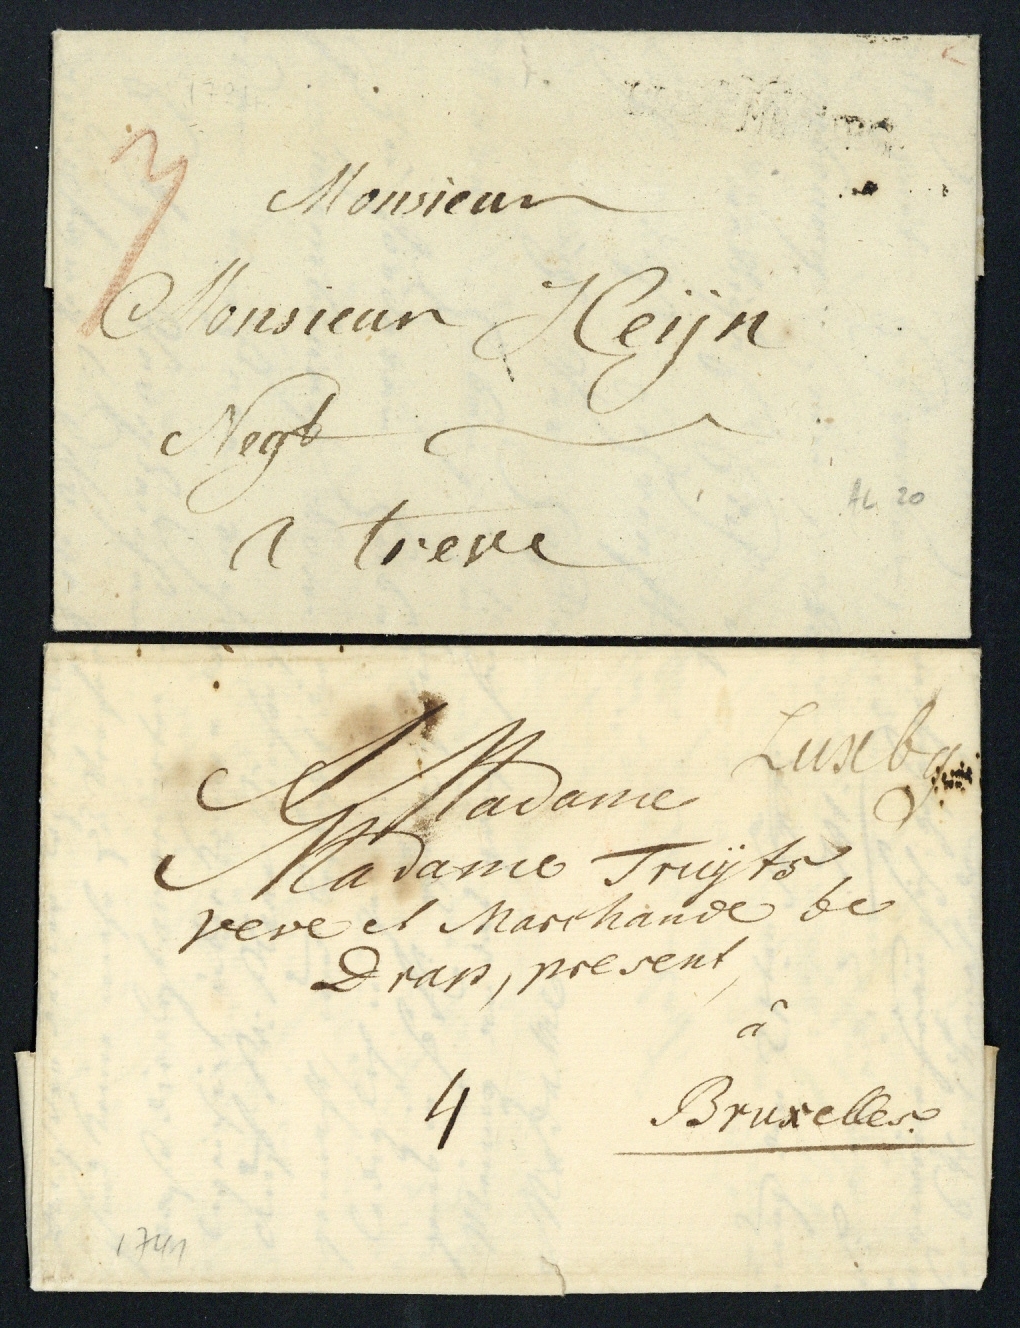 3
Monsieur
Monsieur Heijn
Negt
a treve
AL 20
Luxbg
A Madame
Madame Truijts
veve et Marchande de
Drap, present,
a
Bruxelles
4